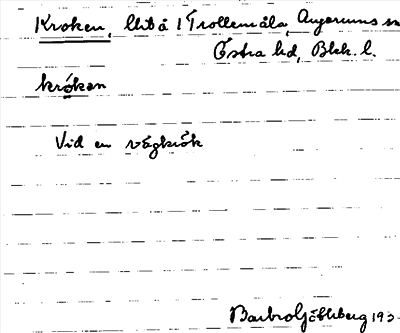 Kroken, lht å 1 Trollemåla, Augerums sn
Östra hd, Blek. l.
krókan
Vid en vägkrök
Barbro Göhlberg 193